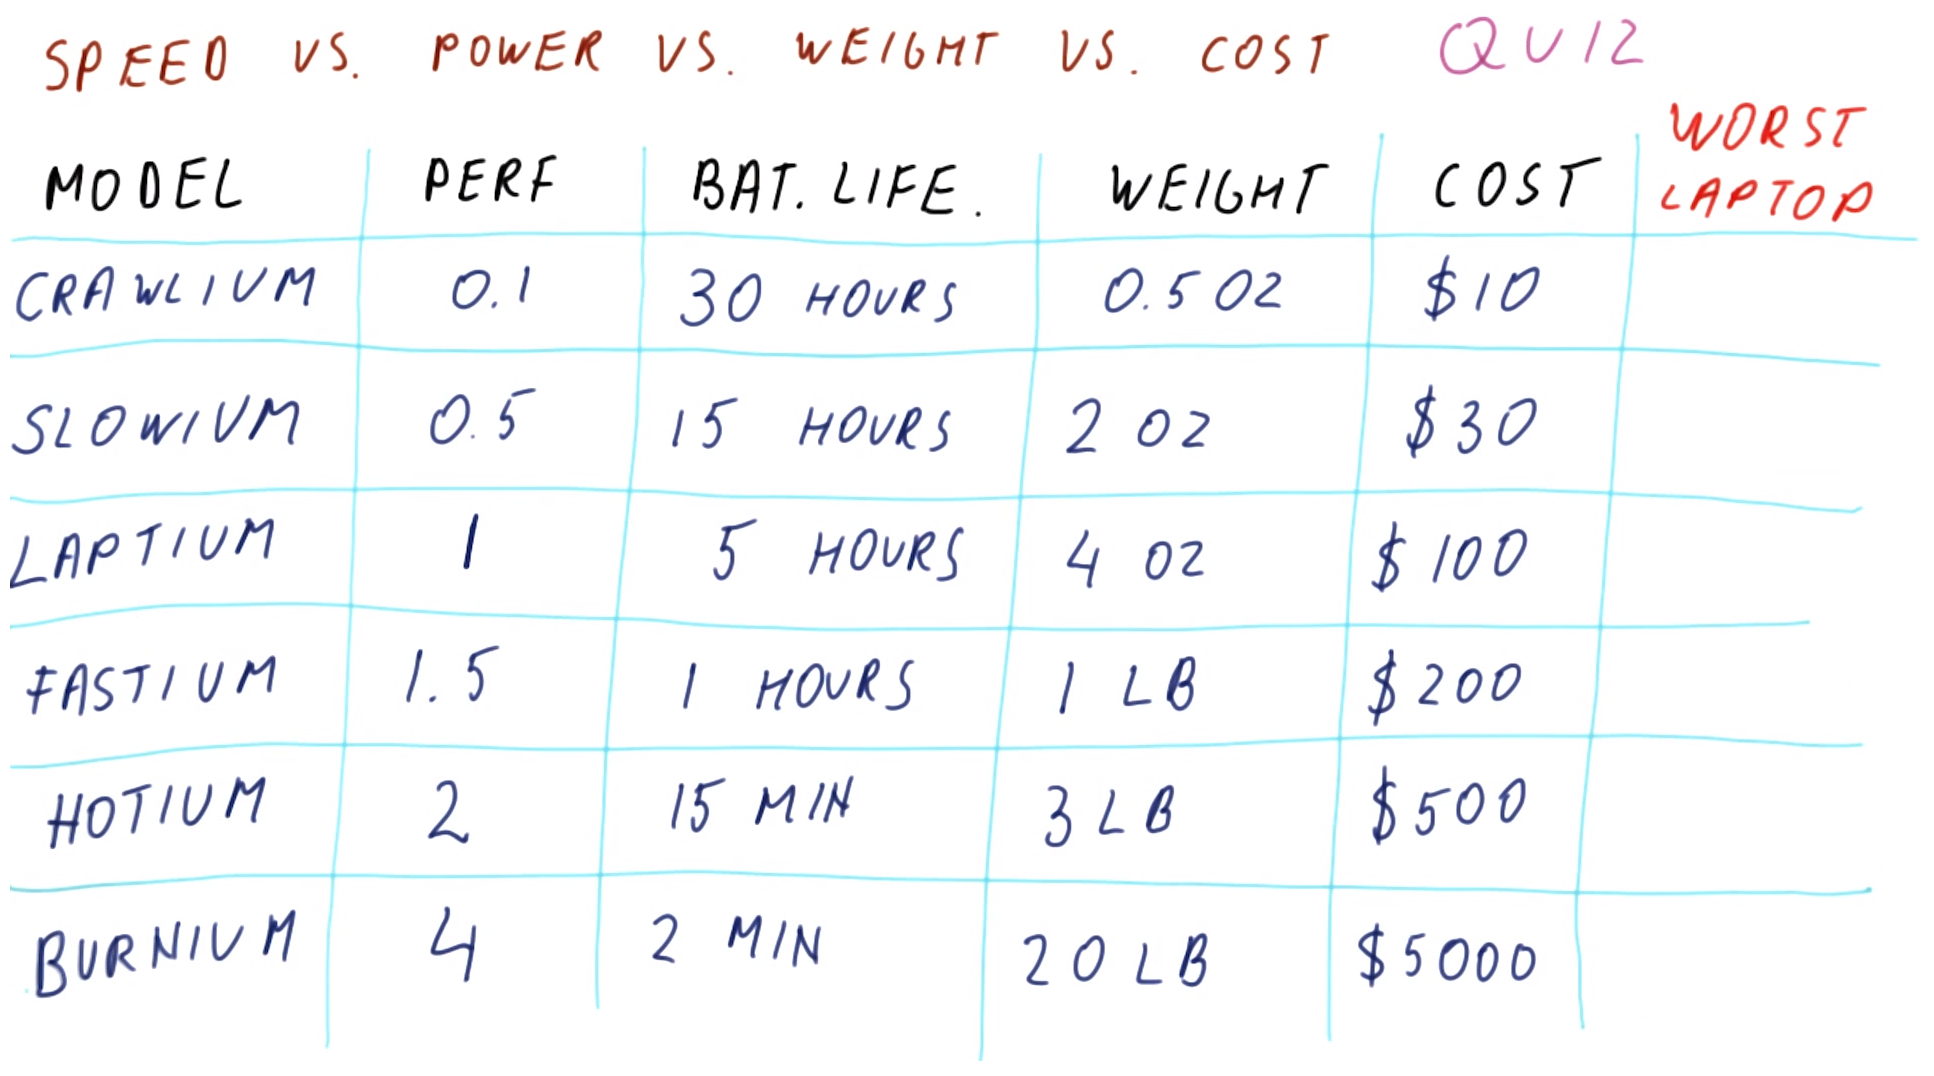 SPEED VS. POWER VS. WEIGHT VS. COST QUIZ
MODEL PERF BAT. LIFE. WEIGHT COST WORST LAPTOP
CRAWLIUM 0.1 30 HOURS 0.5 OZ $10
SLOWIUM 0.5 15 HOURS 2 OZ $30
LAPTIUM 1 5 HOURS 4 OZ $100
FASTIUM 1.5 1 HOURS 1 LB $200
HOTIUM 2 15 MIN 3 LB $500
BURNIUM 4 2 MIN 20 LB $5000